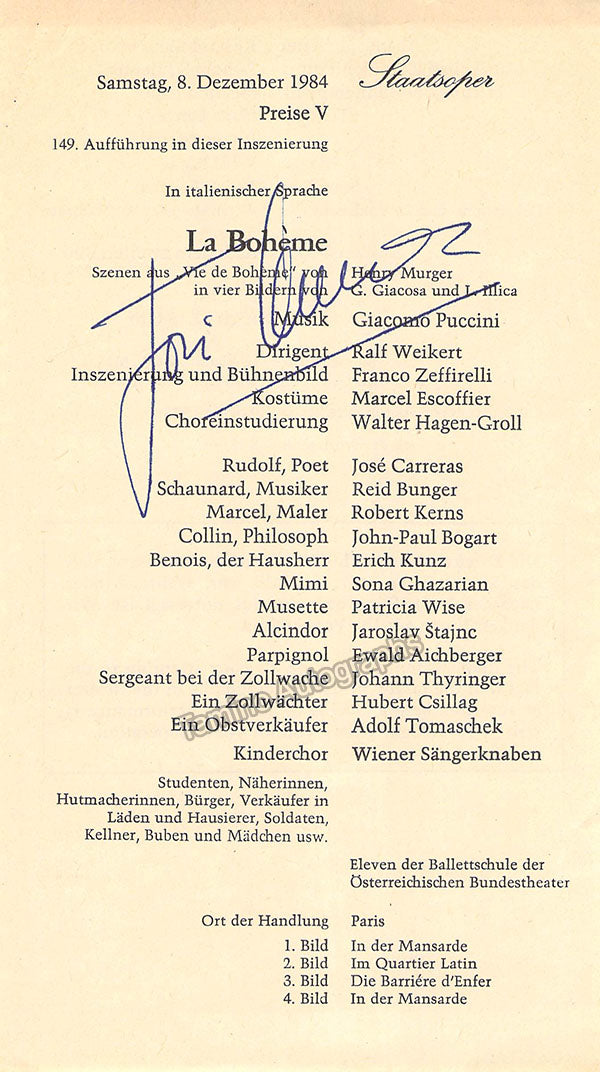 Samstag, 8. Dezember 1984 Staatsoper
Preise V
149. Aufführung in dieser Inszenierung
In italienischer Sprache
La Bohème
Szenen aus „Vie de Bohème" von Henry Murger
in vier Bildern von G. Giacosa und L. Illica
Musik Giacomo Puccini
José Carreras
Dirigent Ralf Weikert
Inszenierung und Bühnenbild Franco Zeffirelli
Kostüme Marcel Escoffier
Choreinstudierung Walter Hagen-Groll
Rudolf, Poet José Carreras
Schaunard, Musiker Reid Bunger
Marcel, Maler Robert Kerns
Collin, Philosoph John-Paul Bogart
Benois, der Hausherr Erich Kunz
Mimi Sona Ghazarian
Musette Patricia Wise
Alcindor Jaroslav Štajnc
Parpignol Ewald Aichberger
Sergeant bei der Zollwache Johann Thyringer
Ein Zollwächter Hubert Csillag
Ein Obstverkäufer Adolf Tomaschek
Tamino Autographs
Kinderchor Wiener Sängerknaben
Studenten, Näherinnen,
Hutmacherinnen, Bürger, Verkäufer in
Läden und Hausierer, Soldaten,
Kellner, Buben und Mädchen usw.
Eleven der Ballettschule der
Österreichischen Bundestheater
Ort der Handlung Paris
1. Bild In der Mansarde
2. Bild Im Quartier Latin
3. Bild Die Barriére d'Enfer
4. Bild In der Mansarde